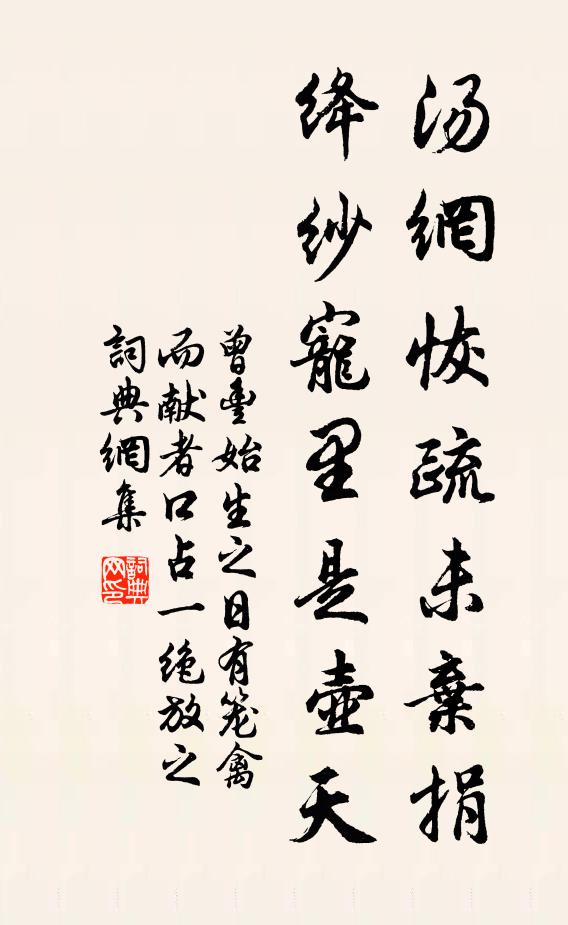 汤網恢疏未棄捐
绛紗寵里是壺天
曾豊始生之日有笼禽
而献者口占一绝放之
詞典網集
詞典网印